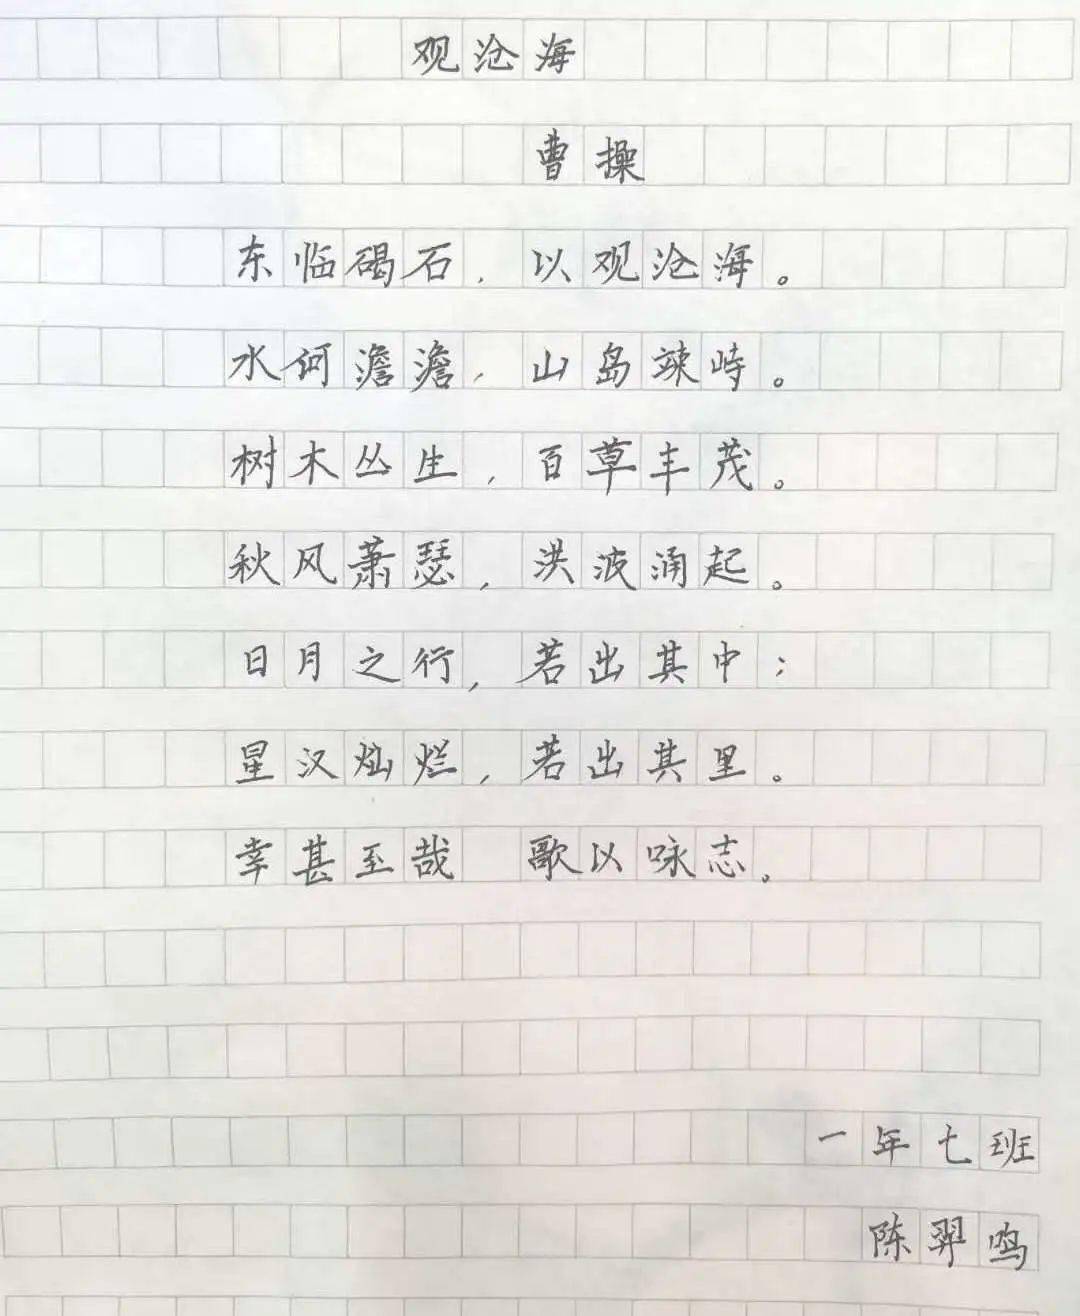 观沧海
曹操
东临碣石，以观沧海。
水何澹澹，山岛竦峙。
树木丛生，百草丰茂。
秋风萧瑟，洪波涌起。
日月之行，若出其中；
星汉灿烂，若出其里。
幸甚至哉 歌以咏志。
一年七班
陈羿鸣